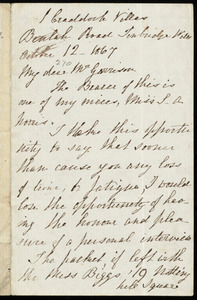 1 Craddock Villas
Beulah Road Tunbridge Wells
October 12 1867
My dear Mr Garrison
The Bearer of this is
one of my nieces, Miss S. A
Norris.
I take this opportu-
nity to say that sooner
than cause you any loss
of time, or fatigue, I would
lose the opportunity of hav-
ing the honour and plea-
sure of a personal interview
The packet if left with
the Miss Biggs' 19 Notting
hill Square